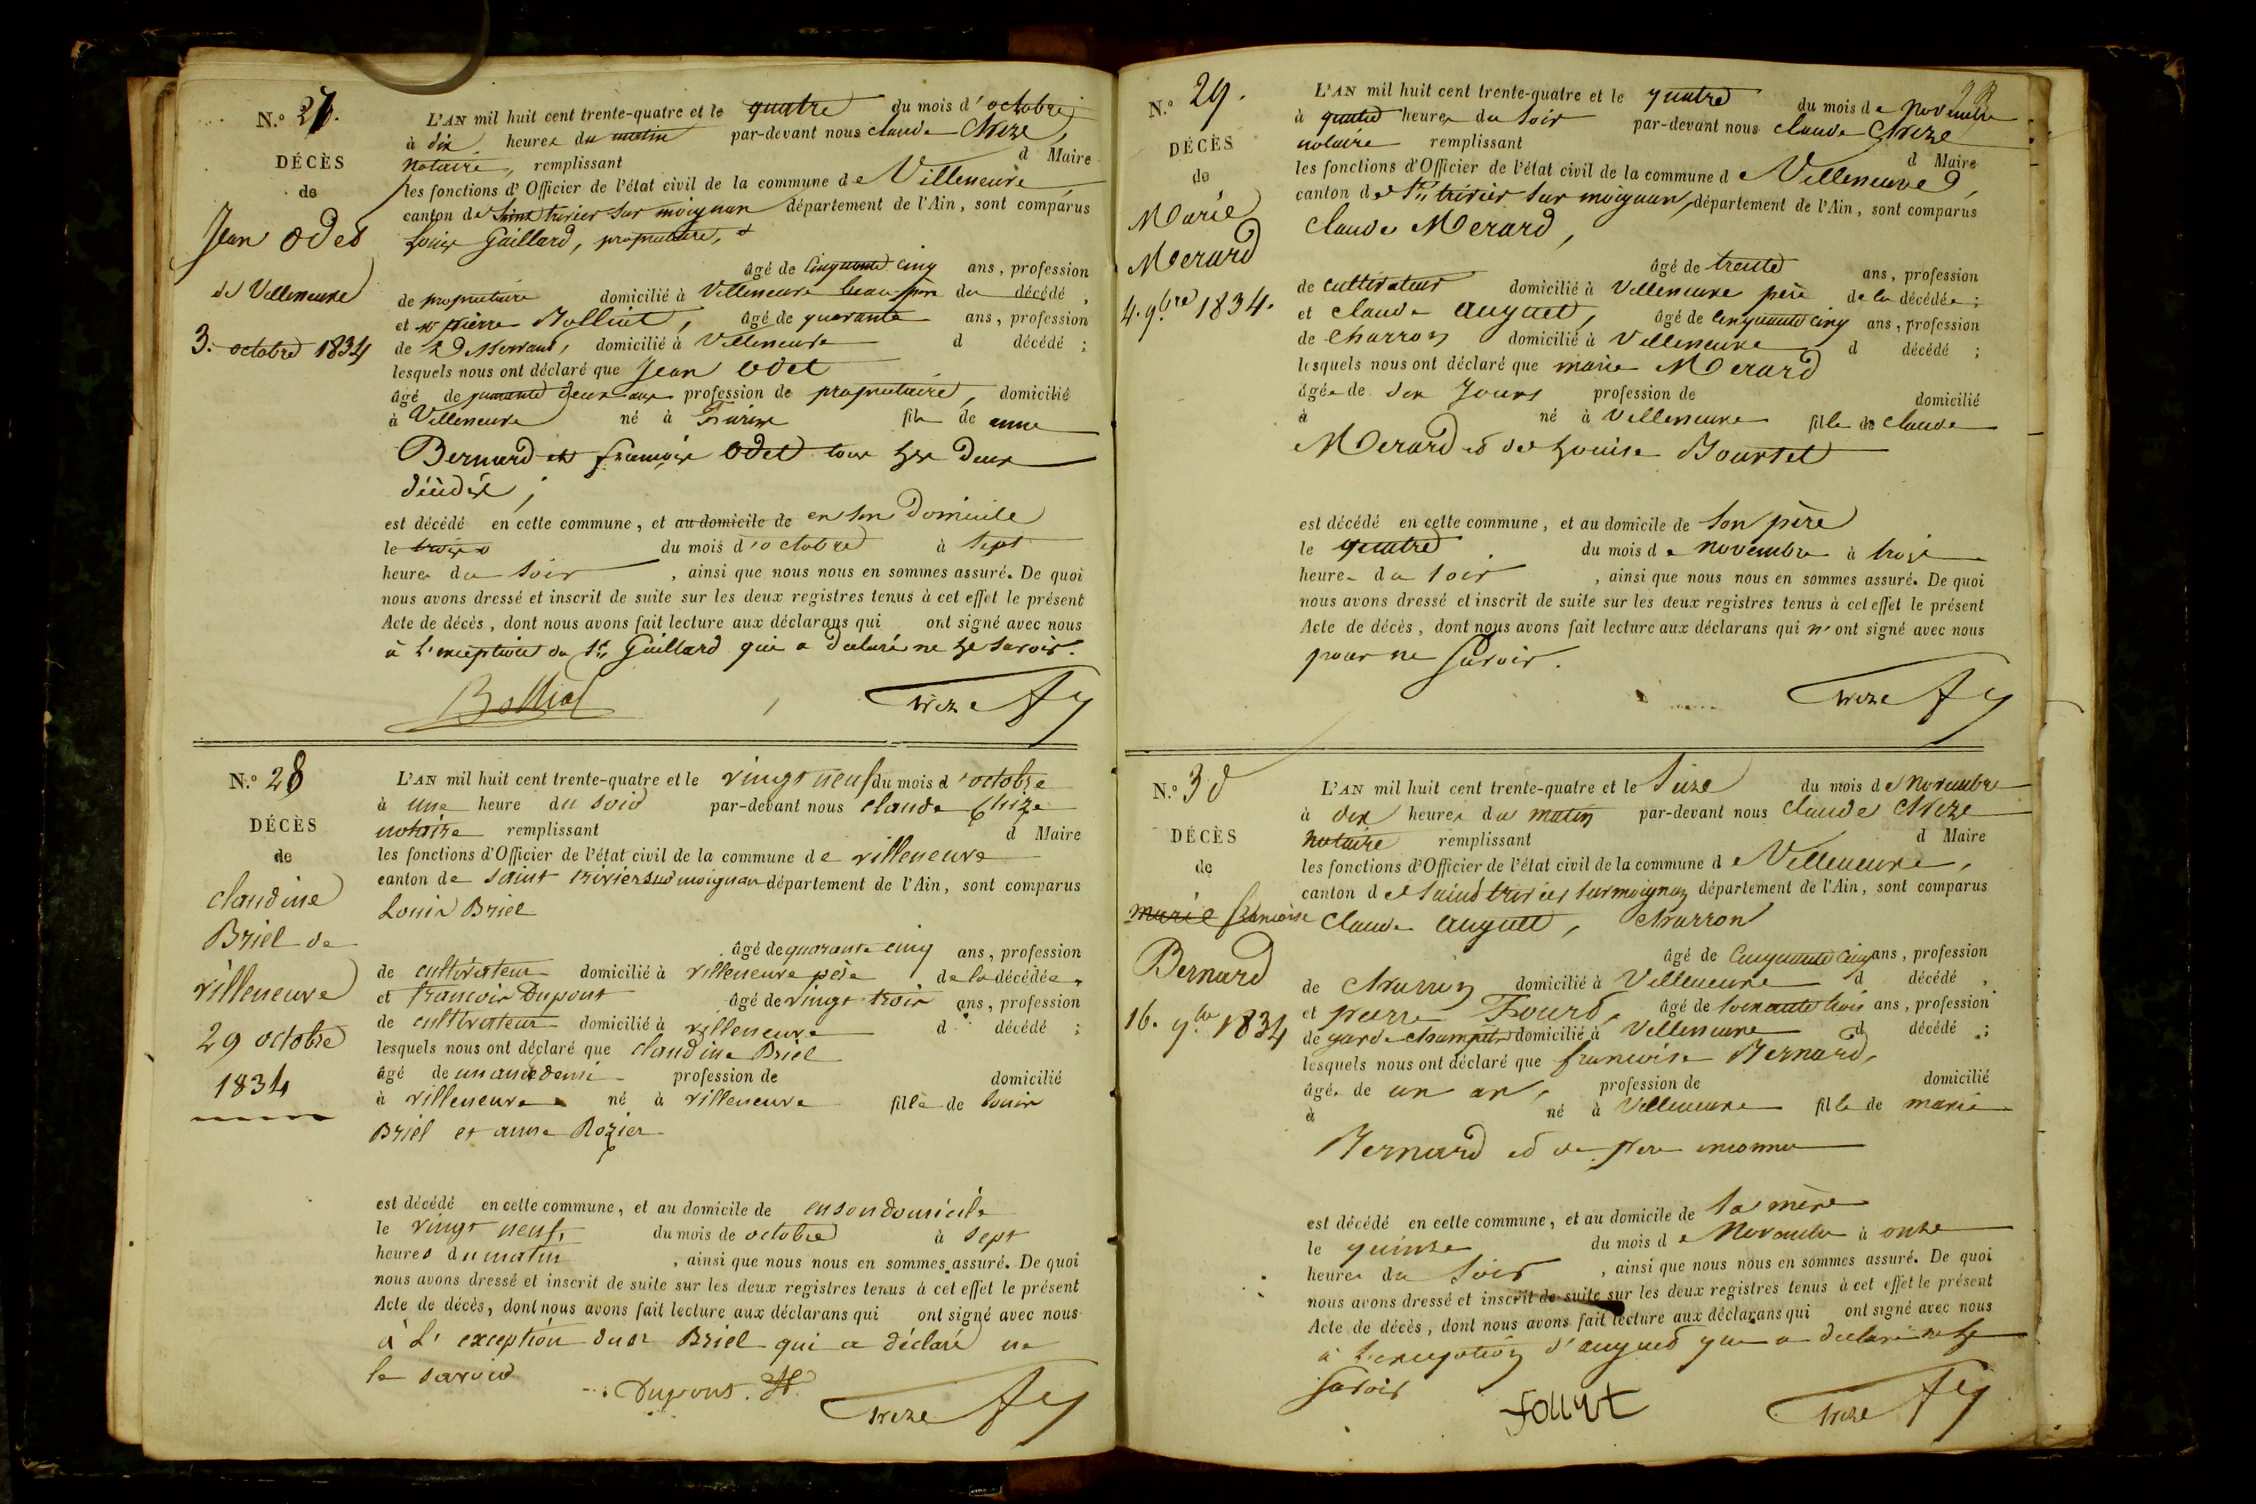 N.o 27.
DÉCÈS
de
Jean Odet
de Villeneuve
3. octobre 1834
L'AN mil huit cent trente-quatre et le quatre du mois d'octobre
à dix heures du matin par-devant nous claude
notaire, remplissant d Maire
les fonctions d'Officier de l'état civil de la commune de Villeneuve,
canton de Saint trivier sur moignan département de l'Ain, sont comparus
Louis Gaillard, propriétaire,
âgé de Cinquante cinq ans, profession
de propriétaire domicilié à Villeneuve beau-père du décédé,
et pierre Bolliat, âgé de quarante ans, profession
de domicilié à Villeneuve d décédé ;
lesquels nous ont déclaré que Jean Odet
âgé de deux ans profession de propriétaire, domicilié
à Villeneuve né à fils de anne
Bernard et françois Odet tous les deux
décédés ;
est décédé en cette commune, et au domicile de en son Domicile
le trois du mois d'octobre à sept
heures du soir, ainsi que nous nous en sommes assuré. De quoi
nous avons dressé et inscrit de suite sur les deux registres tenus à cet effet le présent
Acte de décès, dont nous avons fait lecture aux déclarans qui ont signé avec nous
à l'exception du Sr. Gaillard qui a déclaré ne le savoir.
Bolliat
N.o 28
DÉCÈS
de
claudine
Briel de
villeneuve
29 octobre
1834
L'AN mil huit cent trente-quatre et le vingt neuf du mois d'octobre
à une heure du soir par-devant nous claude
notaire remplissant d Maire
les fonctions d'Officier de l'état civil de la commune de villeneuve
canton de saint trivier sur moignan département de l'Ain, sont comparus
Louis Briel
âgé de quarante cinq ans, profession
de cultivateur domicilié à villeneuve père de la décédée,
et francois Dupont âgé de vingt trois ans, profession
de cultivateur domicilié à villeneuve d décédé ;
lesquels nous ont déclaré que claudine Briel
âgé de un an et demi profession de domicilié
à villeneuve né à villeneuve fille de louis
Briel et anne Rozier
est décédé en cette commune, et au domicile de en son domicile
le vingt neuf, du mois de octobre à sept
heures du matin, ainsi que nous nous en sommes assuré. De quoi
nous avons dressé et inscrit de suite sur les deux registres tenus à cet effet le présent
Acte de décès, dont nous avons fait lecture aux déclarans qui ont signé avec nous
à l'exception du sr Briel qui a déclaré ne
le savoir
Dupont.
N.o 29.
DÉCÈS
de
Marie
Merard
4. 9.bre 1834.
L'AN mil huit cent trente-quatre et le quatre du mois de novembre
à quatre heures du soir par-devant nous claude
notaire remplissant d Maire
les fonctions d'Officier de l'état civil de la commune de Villeneuve,
canton de St. trivier sur moignan, département de l'Ain, sont comparus
Claude Merard,
âgé de trente ans, profession
de cultivateur domicilié à Villeneuve père de la décédée ;
et claude auguet, âgé de cinquante cinq ans, profession
de charron domicilié à Villeneuve d décédé ;
lesquels nous ont déclaré que marie Merard
âgée de dix jours profession de domicilié
à né à Villeneuve fille de claude
Merard et de Louise Bourset
est décédé en cette commune, et au domicile de son père
le quatre du mois de novembre à trois
heures du soir, ainsi que nous nous en sommes assuré. De quoi
nous avons dressé et inscrit de suite sur les deux registres tenus à cet effet le présent
Acte de décès, dont nous avons fait lecture aux déclarans qui n'ont signé avec nous
pour ne savoir.
N.o 30
DÉCÈS
de
marie francoise
Bernard
16. 9.bre 1834
L'AN mil huit cent trente-quatre et le Seize du mois de Novembre
à dix heures du matin par-devant nous Claude
notaire remplissant d Maire
les fonctions d'Officier de l'état civil de la commune de Villeneuve,
canton de Saint trivier sur moignan département de l'Ain, sont comparus
Claude auguet, charron
âgé de Cinquante cinq ans, profession
de charron domicilié à Villeneuve d décédé,
et pierre âgé de soixante trois ans, profession
de garde champêtre domicilié à Villeneuve d décédé ;
lesquels nous ont déclaré que francoise Bernard,
âgée de un an, profession de domicilié
à né à Villeneuve fille de marie
Bernard et de père inconnu
est décédé en cette commune, et au domicile de sa mère
le quinze du mois de Novembre à onze
heures du soir, ainsi que nous nous en sommes assuré. De quoi
nous avons dressé et inscrit de suite sur les deux registres tenus à cet effet le présent
Acte de décès, dont nous avons fait lecture aux déclarans qui ont signé avec nous
à l'exception d'auguet qui a déclaré ne le
savoir